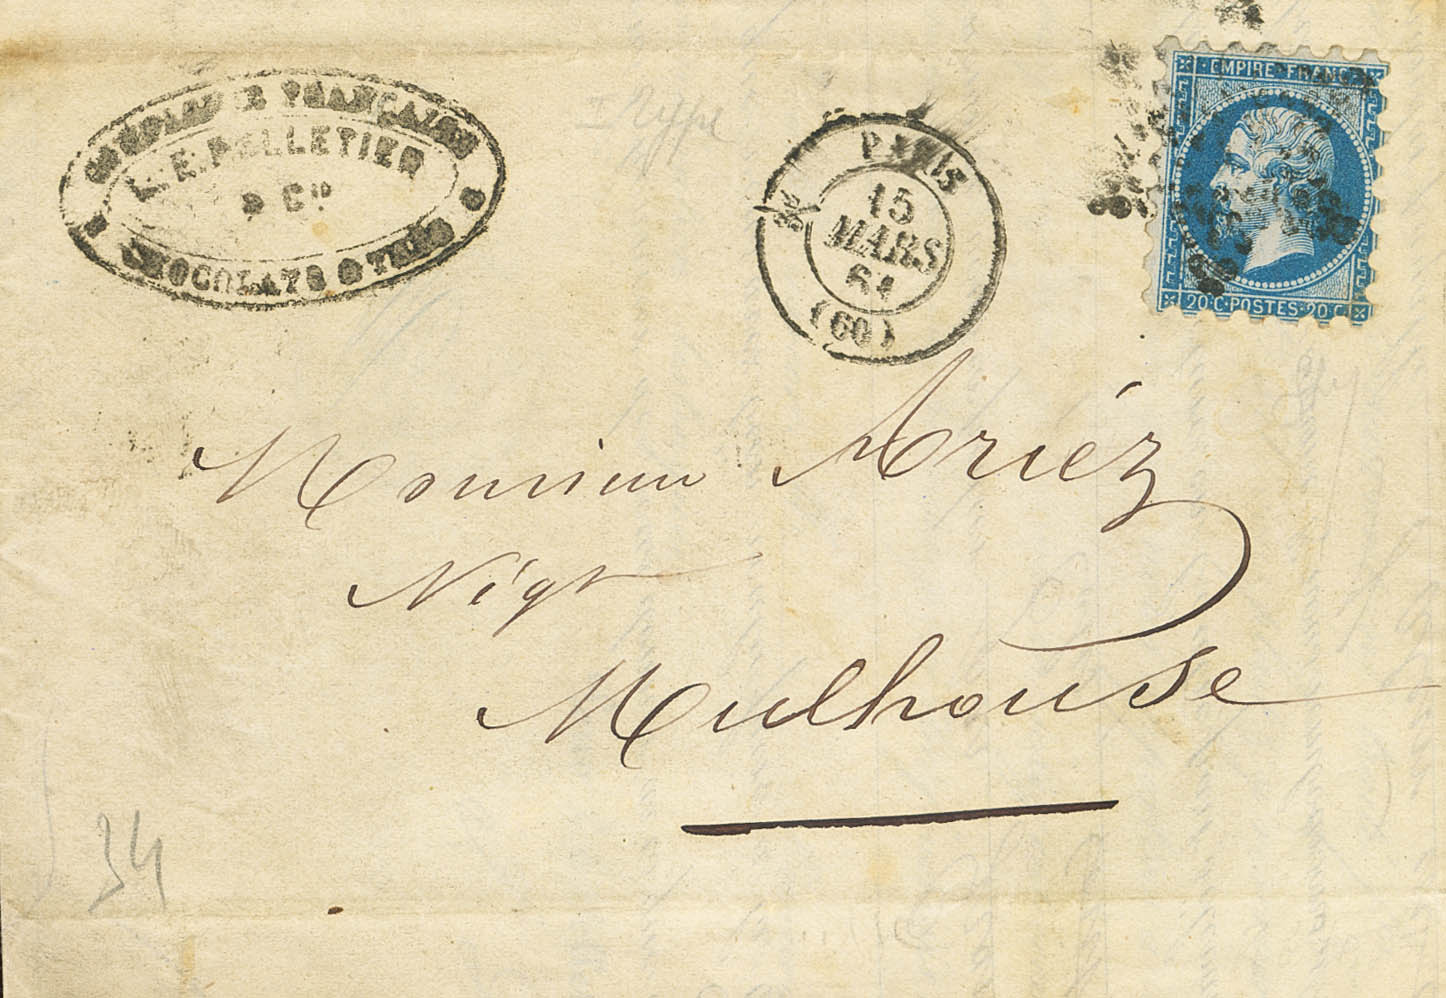 COMPAGNIE FRANÇAISE
E. PELLETIER
& Cie
CHOCOLATS & THÉS
PARIS
15
MARS
61
(60)
EMPIRE FRANC
20·C·POSTES·20·C
Monsieur Ariéz
Négt
Mulhouse
34